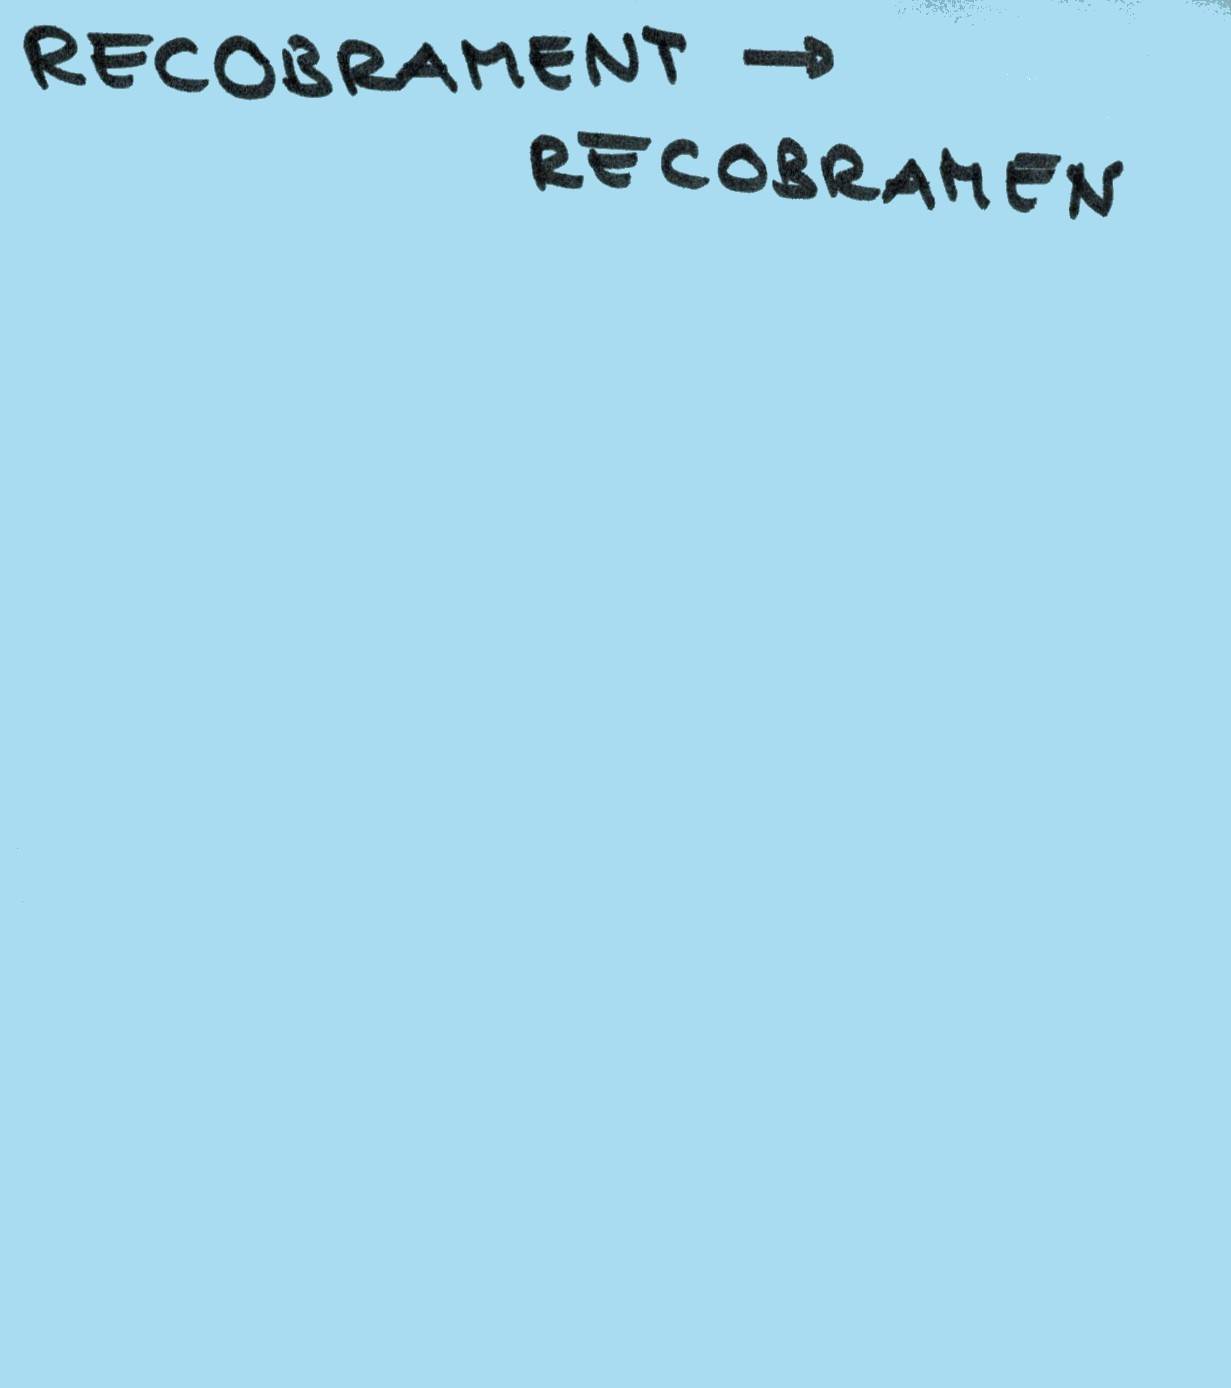 RECOBRAMENT →
RECOBRAMEN